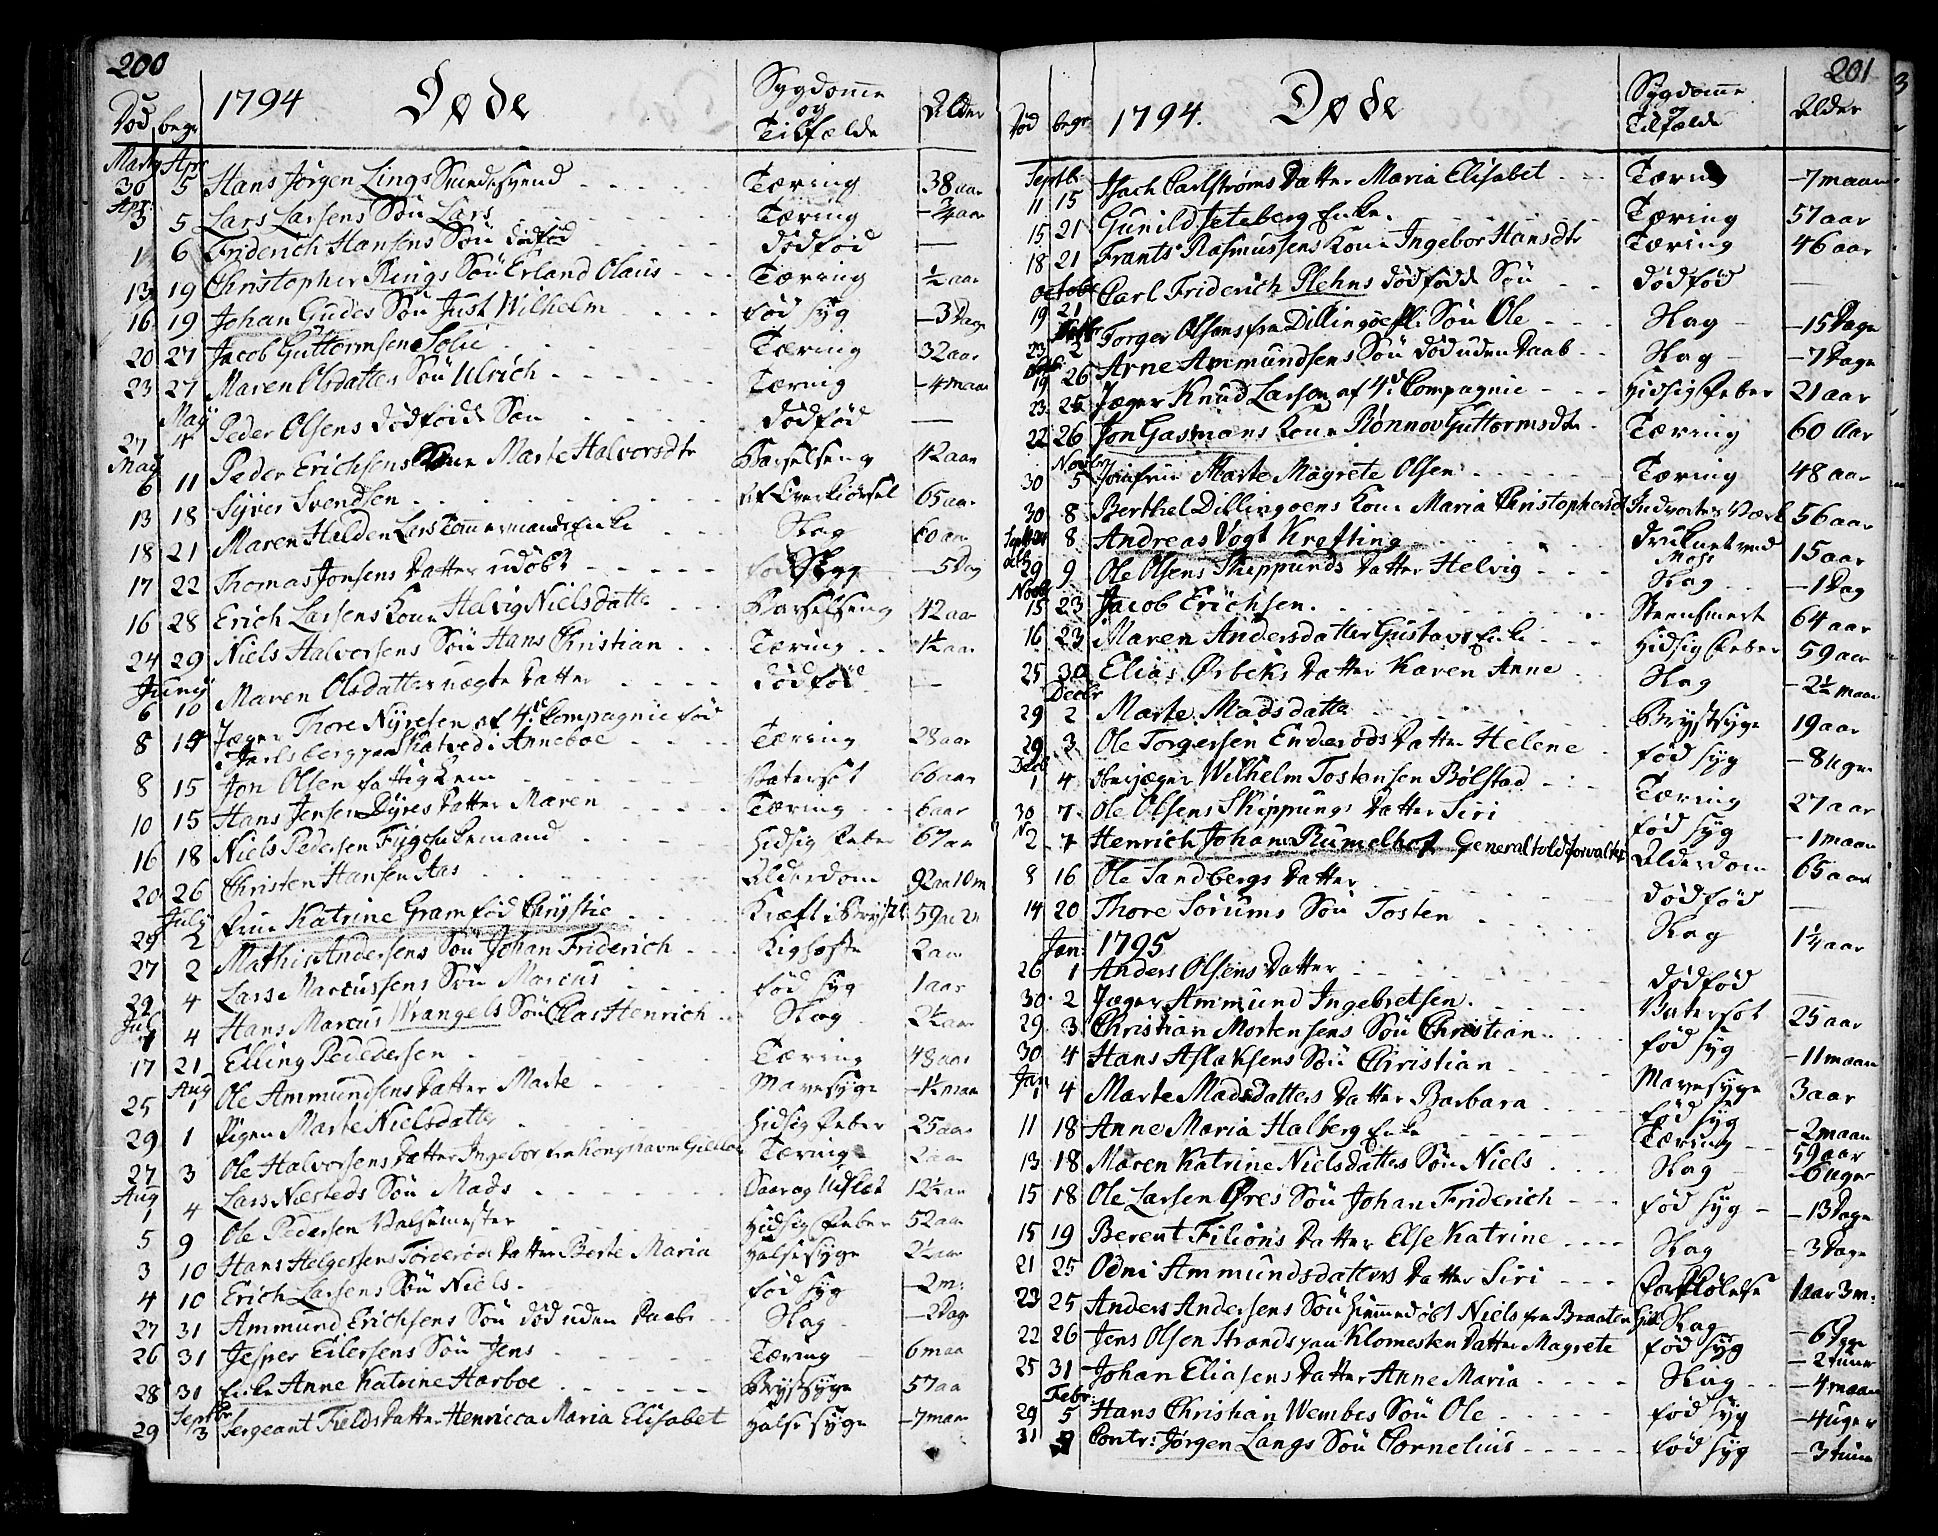 200
1794 Døde Sygdomme og Tilfælde Alder
Død begr
Marty Apr
30 5 Hans Jørgen Lings Svendsvend 38 aar
Apr:
3 5 Lars Larsens Søn Lars Tæring - 3/4 aar
6 Friderich Hansens Søn dødfød dødfød
13 19 Christopher Rings Søn Erland Claus Tæring 1/2 aar
16 19 Johan Gudes Søn Just Wilhelm fød syg - 3 Dage
20 27 Jacob Guttormsen Solie Tæring 32 aar
23 27 Maren Olsdatters Søn Ulrich Tæring - 4 maan
May
27 4 Peder Olsens dødfødde Søn dødfød
May
6 11 Peder Erichsens Kone Marte Halvorsdtr Barselseng 42 aar
13 18 Syver Svendsen 65 aar
18 21 Maren Helden Lars Tømmermands Enke Slag 60 aar
17 22 Thomas Jonsens Datter udøbt - 5 Dag
16 28 Erich Larsens Kone Helvig Nielsdatter Barselseng 42 aar
24 29 Niels Halvorsens Søn Hans Christian Tæring 1 1/2 aar
Juny
6 10 Maren Olsdatters uægte Datter dødfød
8 14 Jæger Thore Nyresen af 4de Compagnie fød
i Jarlsberg paa Skatvedt Anneboe Tæring 28 aar
8 15 Jon Olsen fattig Lem Vatersot 66 aar
10 15 Hans Jensen Dyres Datter Maren Tæring 6 aar
16 18 Niels Pedersen Hidsig Feber 67 aar
20 26 Christen Hansen Aas Alderdom 92 aar 10 m
July
29 2 Frue Katrine Gram fød Chrystie Kræft i Bryst 59
27 2 Mathis Andersens Søn Johan Friderich Kighoste 2 aar
29 4 Lars Marcussens Søn Marcus fød syg 1 aar
Jul
4 Hans Marcus Wrangels Søn Clas Henrich Slag 2 1/2 aar
17 21 Elling Pedersen Tæring 48 aar
Aug
25 1 Ole Ammundsens Datter Marte Mavesyge - 1 1/2 maan
29 1 Pigen Marte Nielsdatter Hidsig Feber 25 aar
27 3 Ole Halvorsens Datter Ingebor Tæring 2 aar
Aug
1 4 Lars Næsteds Søn Mads 12 1/2 aar
5 9 Ole Pedersen Hidsig Feber 52 aar
3 10 Hans Helgersens Datter Berte Maria Halsesyge 2 1/2 aar
4 10 Erich Larsens Søn Niels fød syg - 2 m:
27 31 Ammund Erichsens Søn død uden Daab Slag - 2 Dag
26 31 Jesper Eilersens Søn Jens Tæring 6 maa
28 31 Enke Anne Katrine Harboe Brystsyge 57 aa
Septbr
29 3 Sergeant Fields Datter Henricca Maria Elisabet Halsesyge - 7 maan
201
1794. Døde Sygdomme og Tilfælde Alder
Død begr
Septbr:
11 15 Isach Carlstrøms Datter Maria Elisabet Tæring - 7 maan
15 21 Gunild Seteberg Enke. Tæring 57 aar
18 21 Frants Rasmussens Kone Ingebor Hansdtr Tæring 46 aar
Octobr
19 21 Carl Friderich Plehns dødfødde Søn dødfød
23 2 Torger Olsens fra Dillingøen Søn Ole Slag - 15 Dage
19 26 Arne Ammundsens Søn død uden Daab Slag - 7 Dage
23 25 Jæger Knud Larsen af 4de Compagnie Hidsig Feber 21 aar
22 26 Jon Gasmans Kone Rønnov Guttormsdtr Tæring 60 Aar
Novbr
30 5 Jomfrue Marte Magrete Olsen Tæring 48 aar
30 8 Berthel Dillingøens Kone Maria Christophersd Indvortes Værk 56 aar
8 Andreas Vogt Krefting Druknet ved Moss 15 aar
29 9 Ole Olsens Skippunds Datter Helvig Slag - 1 Dag
Novbr
15 23 Jacob Erichsen. Steensmert 64 aar
16 23 Maren Andersdatter Gustavs Enke Hidsig Feber 59 aar
25 30 Elias Ørbeks Datter Karen Anne Slag - 2 1/2 maan
Decbr
29 2 Marte Madsdatter Brystsyge 19 aar
29 3 Ole Torgersen Enderøds Datter Helene fød syg - 8 Uger
Decbr
1 4 Oberjæger Wilhelm Tostensen Bølstad Tæring 27 aar
30 7 Ole Olsens Skippungs Datter Siri fød syg - 1 maan
2 7 Henrich Johan Rumelhof General toldforvalter Alderdom 65 aar
8 16 Ole Sandbergs Datter dødfød
14 20 Thore Sorums Søn Tosten Slag 1 1/4 aar
Jan: 1795
26 1 Anders Olsens Datter dødfød
30 2 Jæger Ammund Ingebretsen. Vatersot 25 aar
29 3 Christian Mortensens Søn Christian fød syg - 11 maan
30 4 Hans Aslaksens Søn Christian Mavesyge 3 aar
Jan
1 4 Marte Madsdatters Datter Barbara fød syg - 2 maan
11 18 Anne Maria Halberg Enke Tæring 59 aar
13 18 Maren Katrine Nielsdatters Søn Niels Slag - 6 Uger
15 18 Ole Larsen Øres Søn Johan Friderich fød syg - 13 Dage
15 19 Berent Filions Datter Else Katrine Slag - 3 Dage
21 25 Odni Ammundsdatters Datter Siri Forkiølelse 1 aar 3 m:
23 25 Anders Andersens Søn hiemmedøbt Niels fra Braaten Slag - 6 Dage
22 26 Jens Olsen Strands paa Klomesten Datter Magrete fød syg - 2 timer
25 31 Johan Eliasens Datter Anne Maria Slag - 4 maan
Febr:
29 5 Hans Christian Wembes Søn Ole fød syg - 4 uger
31 Contr: Jørgen Langs Søn Cornelius fød syg - 3 tim